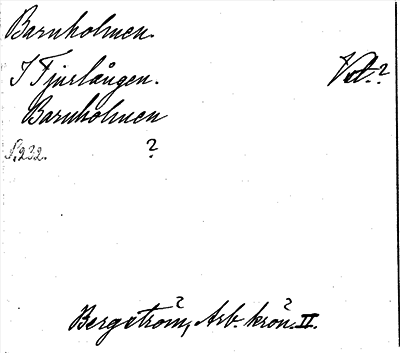 Barnholmen.
I Tjurlången. Vd.?
Barnholmen
S. 232. ?
Bergström, Arb. krön. II.
? ?